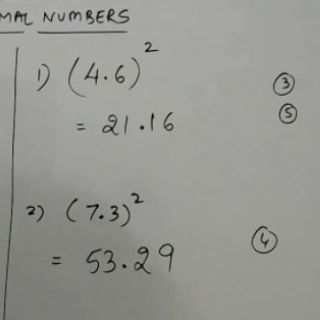 MAL NUMBERS
1) (4.6)²
= 21.16
③
⑤
2) (7.3)²
= 53.29
④